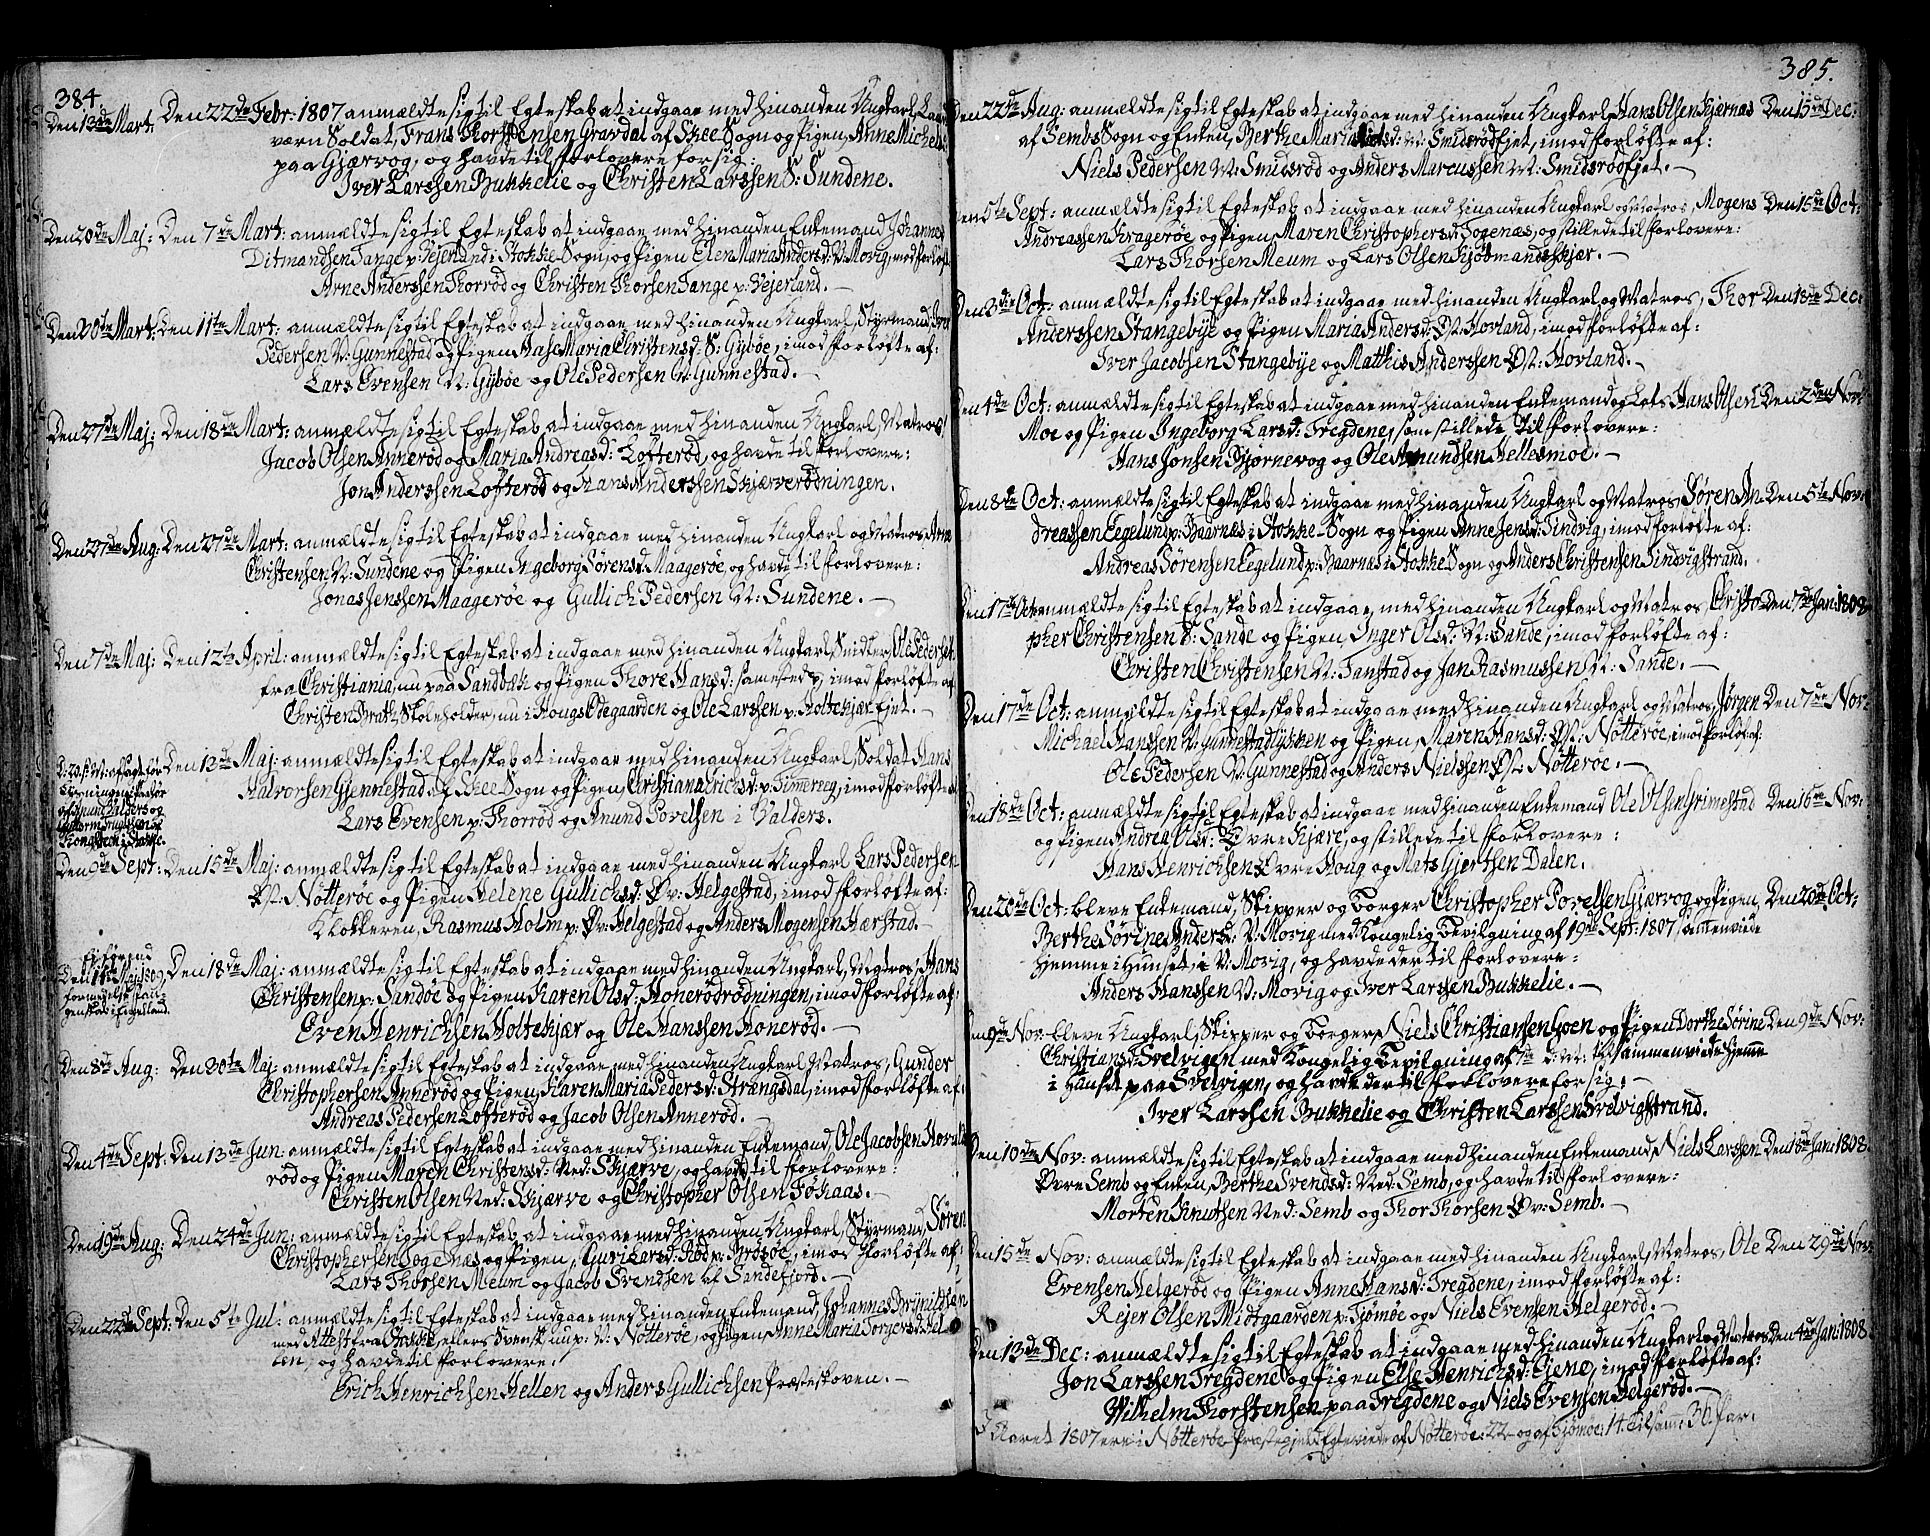 384.
Den 13de Mart: Den 22de Febr: 1807 anmældte sig til Egteskab at indgaae med hinanden Ungkarl Land
værn Soldat, Frans Thorstensen Gravdal af Skee Sogn og Pigen, Anne Michels
paa Gjærvog, og havde til forlovere for sig:
Iver Larssen Bukkelie og Christen Larssen S: Sundene.
Den 20de Maj: Den 7de Mart: anmældte sig til Egteskab at indgaae med hinanden Enkemand Johannes
Ditmandsen Tange p: Vejerland i Stokke Sogn, og Pigen Elen Maria Andersd: V: Movig, imod forløfte
Arne Anderssen Thorrød og Christen Thorsen Tange p: Vejerland. —
Den 20te Mart: Den 11te Mart: anmældte sig til Egteskab at indgaae med hinanden Ungkarl, Styrmand Iver
Pedersen N: Gunnestad og Pigen Aase Maria Christensd: S: Gybøe, imod forløfte af:
Lars Evensen N: Gybøe og Ole Pedersen N: Gunnestad. —
Den 27de Maj: Den 18de Mart: anmældte sig til Egteskab at indgaae med hinanden Ungkarl, Matros,
Jacob Olsen Annerød og Maria Andreasd: Lofterød, og havde til forlovere:
Jon Anderssen Lofterød og Hans Anderssen Skjærverødningen.
Den 27de Aug: Den 27de Mart: anmældte sig til Egteskab at indgaae med hinanden Ungkarl og Matros Arne
Christensen N: Sundene og Pigen Ingeborg Sørensd: Maagerøe, og havde til forlovere:
Jonas Jenssen Maagerøe og Gullich Pedersen N: Sundene. —
Den 7de Maj: Den 12te April: anmældte sig til Egteskab at indgaae med hinanden Ungkarl, Snidker, Ole Pedersen
fra Christiania, nu paa Sandbæk og Pigen Thore Hansd: samested p, imod forløfte af
Christen Brath, Skoleholder, nu i Hougs Ødegaarden og Ole Larssen p: Holtekjær Ejet. —
Den 12de Maj: anmældte sig til Egteskab at indgaae med hinanden Ungkarl, Soldat Hans
Halvorsen Gjennestad af Skee Sogn og Pigen, Christiana Erichsd: p: Timereeg, imod forløfte af
Lars Evensen p: Thorrød og Anund Povelsen i Valders.
Den 9de Sept: Den 15de Maj: anmældte sig til Egteskab at indgaae med hinanden Ungkarl Lars Pedersen
Øst: Nøtterøe og Pigen Helene Gullichsd: Øv: Helgestad, imod forløfte af:
Klokkeren, Rasmus Holm p: Øv: Helgestad og Anders Mogensen Hærstad. —
Den 11te Maj 1809
Den 18de Maj: anmældte sig til Egteskab at indgaae med hinanden Ungkarl, Matros, Hans
Christensen p: Sandøe og Pigen Karen Olsd: Honerødrødningen, imod forløfte af:
Even Henrichsen Holtekjær og Ole Hanssen Honerød. —
Den 8de Aug: Den 30te Maj: anmældte sig til Egteskab at indgaae med hinanden Ungkarl Matros, Gunder
Christophersen Annerød og Pigen, Karen Maria Pedersd: Strangsdal, imod forløfte af:
Andreas Pedersen Lofterød og Jacob Olsen Annerød.
Den 4de Sept: Den 13de Jun: anmældte sig til Egteskab at indgaae med hinanden Enkemand, Ole Jacobsen Hovald
rød og Pigen Maren Christensd: Ned: Skjærve, og havde til forlovere:
Christen Olsen Ned: Skjærve og Christopher Olsen Føhaas. —
Den 19de Aug: Den 24de Jun: anmældte sig til Egteskab at indgaae med hinanden Ungkarl, Styrmand, Søren
Christophersen Togenæs og Pigen, Guri Larsd: Rød p: Brøtsøe, imod forløfte af:
Lars Thorsen Meum og Jacob Svendsen af Sandefjord. —
Den 22de Sept: Den 5te Jul: anmældte sig til Egteskab at indgaae med hinanden Enkemand, Johannes Brynildsen
med Attest fra Bakke, ellers Svensk nu p: V: Nøtterøe, og Pigen, Anne Maria Torgersd: Hel-
len, og havde til forlovere:
Erich Henrichsen Hellen og Anders Gullichsen Præsteskoven. —
385.
Den 22de Aug: anmældte sig til Egteskab at indgaae med hinanden Ungkarl, Hans Olsen Kjærnas Den 15de Dec:
af Sembs Sogn og Enken, Berthe Maria Nielsd: N: Smidsrød Ejet, imod forløfte af:
Niels Pedersen N: Smidsrød og Anders Marcussen N: Smidsrød Ejet. —
Den 5te Sept: anmældte sig til Egteskab at indgaae med hinanden Ungkarl og Matros, Mogens Den 15de Oct:
Andreassen Kragerøe og Pigen Maren Christophersd: Togenæs, og stillede til forlovere:
Lars Thorsen Meum og Lars Olsen Kjøbmandskjær. —
Den 3die Oct: anmældte sig til Egteskab at indgaae med hinanden Ungkarl og Matros, Thor Den 18de Dec:
Anderssen Stangebye og Pigen Maria Andersd: Øst: Hovland, imod forløfte af:
Iver Jacobsen Stangebye og Matthis Anderssen Øst: Hovland. —
Den 4de Oct: anmældte sig til Egteskab at indgaae med hinanden Enkemand og Lots Hans Olsen Den 2den Nov:
Moe og Pigen Ingeborg Larsd: Tregdene, som stillede til forlovere:
Hans Jonsen Bjørnevog og Ole Amundsen Hellesmoe. —
Den 8de Oct: anmældte sig til Egteskab at indgaae med hinanden Ungkarl og Matros Søren An- Den 5te Nov:
dreassen Eegelund p: Baarnæs i Stokke Sogn og Pigen Anne Jensd: Tindvig, imod forløfte af:
Andreas Sørensen Eegelund p: Baarnæs i Stokke Sogn og Anders Christensen Tindvigstrand.
Den 17de Oct: anmældte sig til Egteskab at indgaae med hinanden Ungkarl og Matros, Christo- Den 7de Jan: 1808
pher Christensen S: Sande og Pigen Inger Olsd: N: Sande, imod forløfte af:
Christen Christensen N: Tanstad og Jan Rasmussen N: Sande. —
Den 17de Oct: anmældte sig til Egteskab at indgaae med hinanden Ungkarl og Matros, Jørgen Den 7de Nov:
Michael Hanssen N: Gunnestadløkken og Pigen, Maren Hansd: Øst: Nøtterøe, imod forløf: af:
Ole Pedersen N: Gunnestad og Anders Nielssen Øst: Nøtterøe. —
Den 18de Oct: anmældte sig til Egteskab at indgaae med hinanden Enkemand Ole Olsen Grimestad Den 16de Nov:
og Pigen Andrea Olsd: Øvre Kjære, og stillede til forlovere:
Hans Henrichsen Øvre Houg og Mats Gjertsen Dalen.
Den 20de Oct: bleve Enkemand, Skipper og Borger Christopher Povelsen Gjærvog og Pigen, Den 20de Oct:
Berthe Sørine Andersd: V: Movig med Kongelig Bevilgning af 19de Sept: 1807 sammenviede
hjemme i Huuset, i V: Movig, og havde der til forlovere:
Anders Hanssen V: Movig og Iver Larssen Bukkelie. —
Den 9de Nov: bleve Ungkarl, Skipper og Borger, Niels Christiansen Goen og Pigen Dorthe Sørine Den 9de Nov:
Christiansd: Svelvigen med Kongelig Bevilgning af sammenviede hjemme
i Huuset paa Svelvigen, og havde der til forlovere for sig: —
Iver Larssen Bukkelie og Christen Larssen Svelvigstrand.
Den 10de Nov: anmældte sig til Egteskab at indgaae med hinanden Enkemand, Niels Larssen Den 18de Jan: 1808.
Øvre Semb og Enken, Berthe Svendsd: Ned: Semb, og havde til forlovere:
Morten Knutsen Ned: Semb og Thor Thorsen Øv: Semb. —
Den 15de Nov: anmældte sig til Egteskab at indgaae med hinanden Ungkarl, Matros, Ole Den 29de Nov:
Evensen Helgerød og Pigen Anne Hansd: Tregdene, imod forløfte af:
Rejer Olsen Midtgaarden p: Tjømøe og Niels Evensen Helgerød. —
Den 13de Dec: anmældte sig til Egteskab at indgaae med hinanden Ungkarl og Matros Den 4de Jan: 1808
Jon Larssen Tregdene og Pigen Else Henrichsd: Ejene, imod forløfte af:
Wilhelm Thorstensen paa Tregdene og Niels Evensen Helgerød. —
I Aaret 1807 ere i Nøtterøe Præstegjeld Egteviede af Nøtterøe: 22 og af Tjømøe: 14. Tilsam: 36 Par.